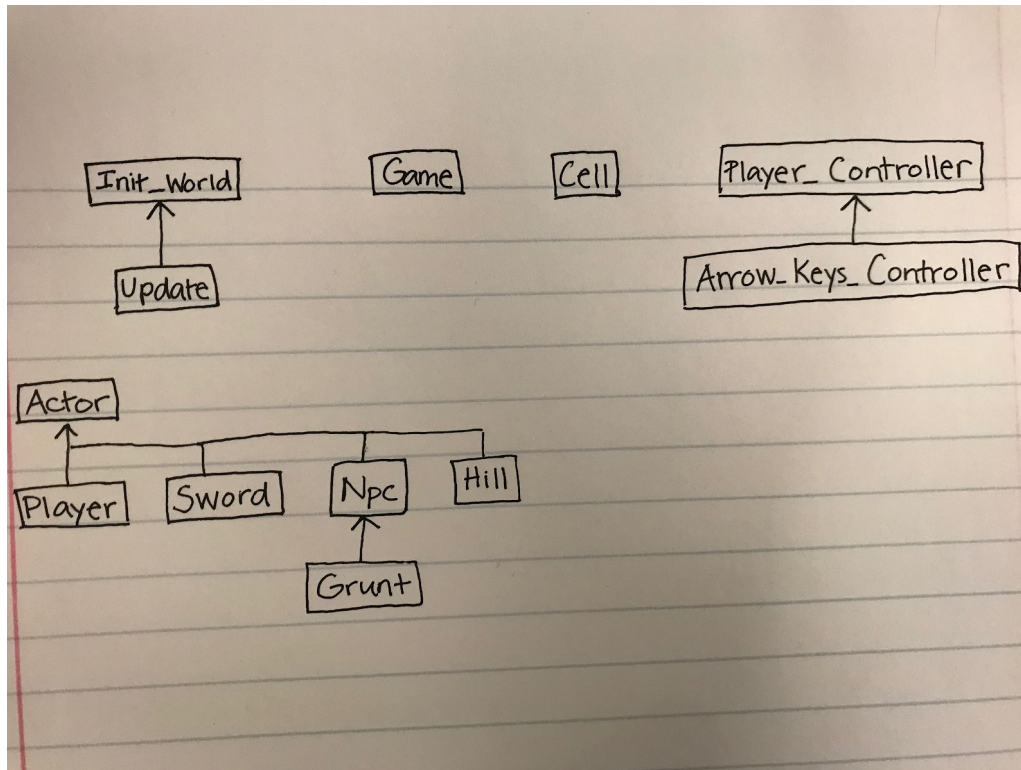 Init_World
Game
Cell
Player_Controller
Update
Arrow_Keys_Controller
Actor
Player
Sword
Npc
Hill
Grunt